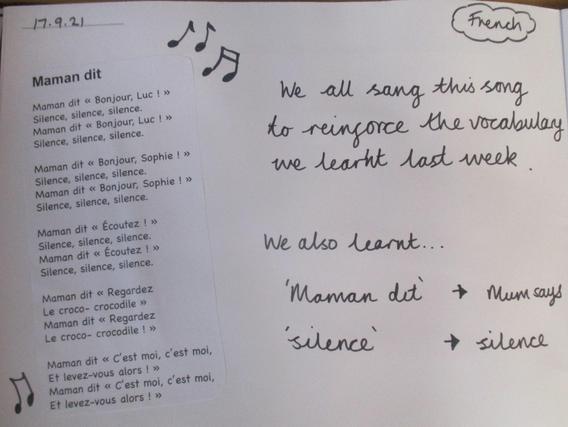 17.9.21
French
Maman dit
Maman dit « Bonjour, Luc ! »
Silence, silence, silence.
Maman dit « Bonjour, Luc ! »
Silence, silence, silence.
Maman dit « Bonjour, Sophie ! »
Silence, silence, silence.
Maman dit « Bonjour, Sophie ! »
Silence, silence, silence.
Maman dit « Écoutez ! »
Silence, silence, silence.
Maman dit « Écoutez ! »
Silence, silence, silence.
Maman dit « Regardez
Le croco- crocodile »
Maman dit « Regardez
Le croco- crocodile ! »
Maman dit « C'est moi, c'est moi,
Et levez-vous alors ! »
Maman dit « C'est moi, c'est moi,
Et levez-vous alors ! »
We all sang this song
to reinforce the vocabulary
we learnt last week.
We also learnt...
'Maman dit' → Mum says
'silence' → silence